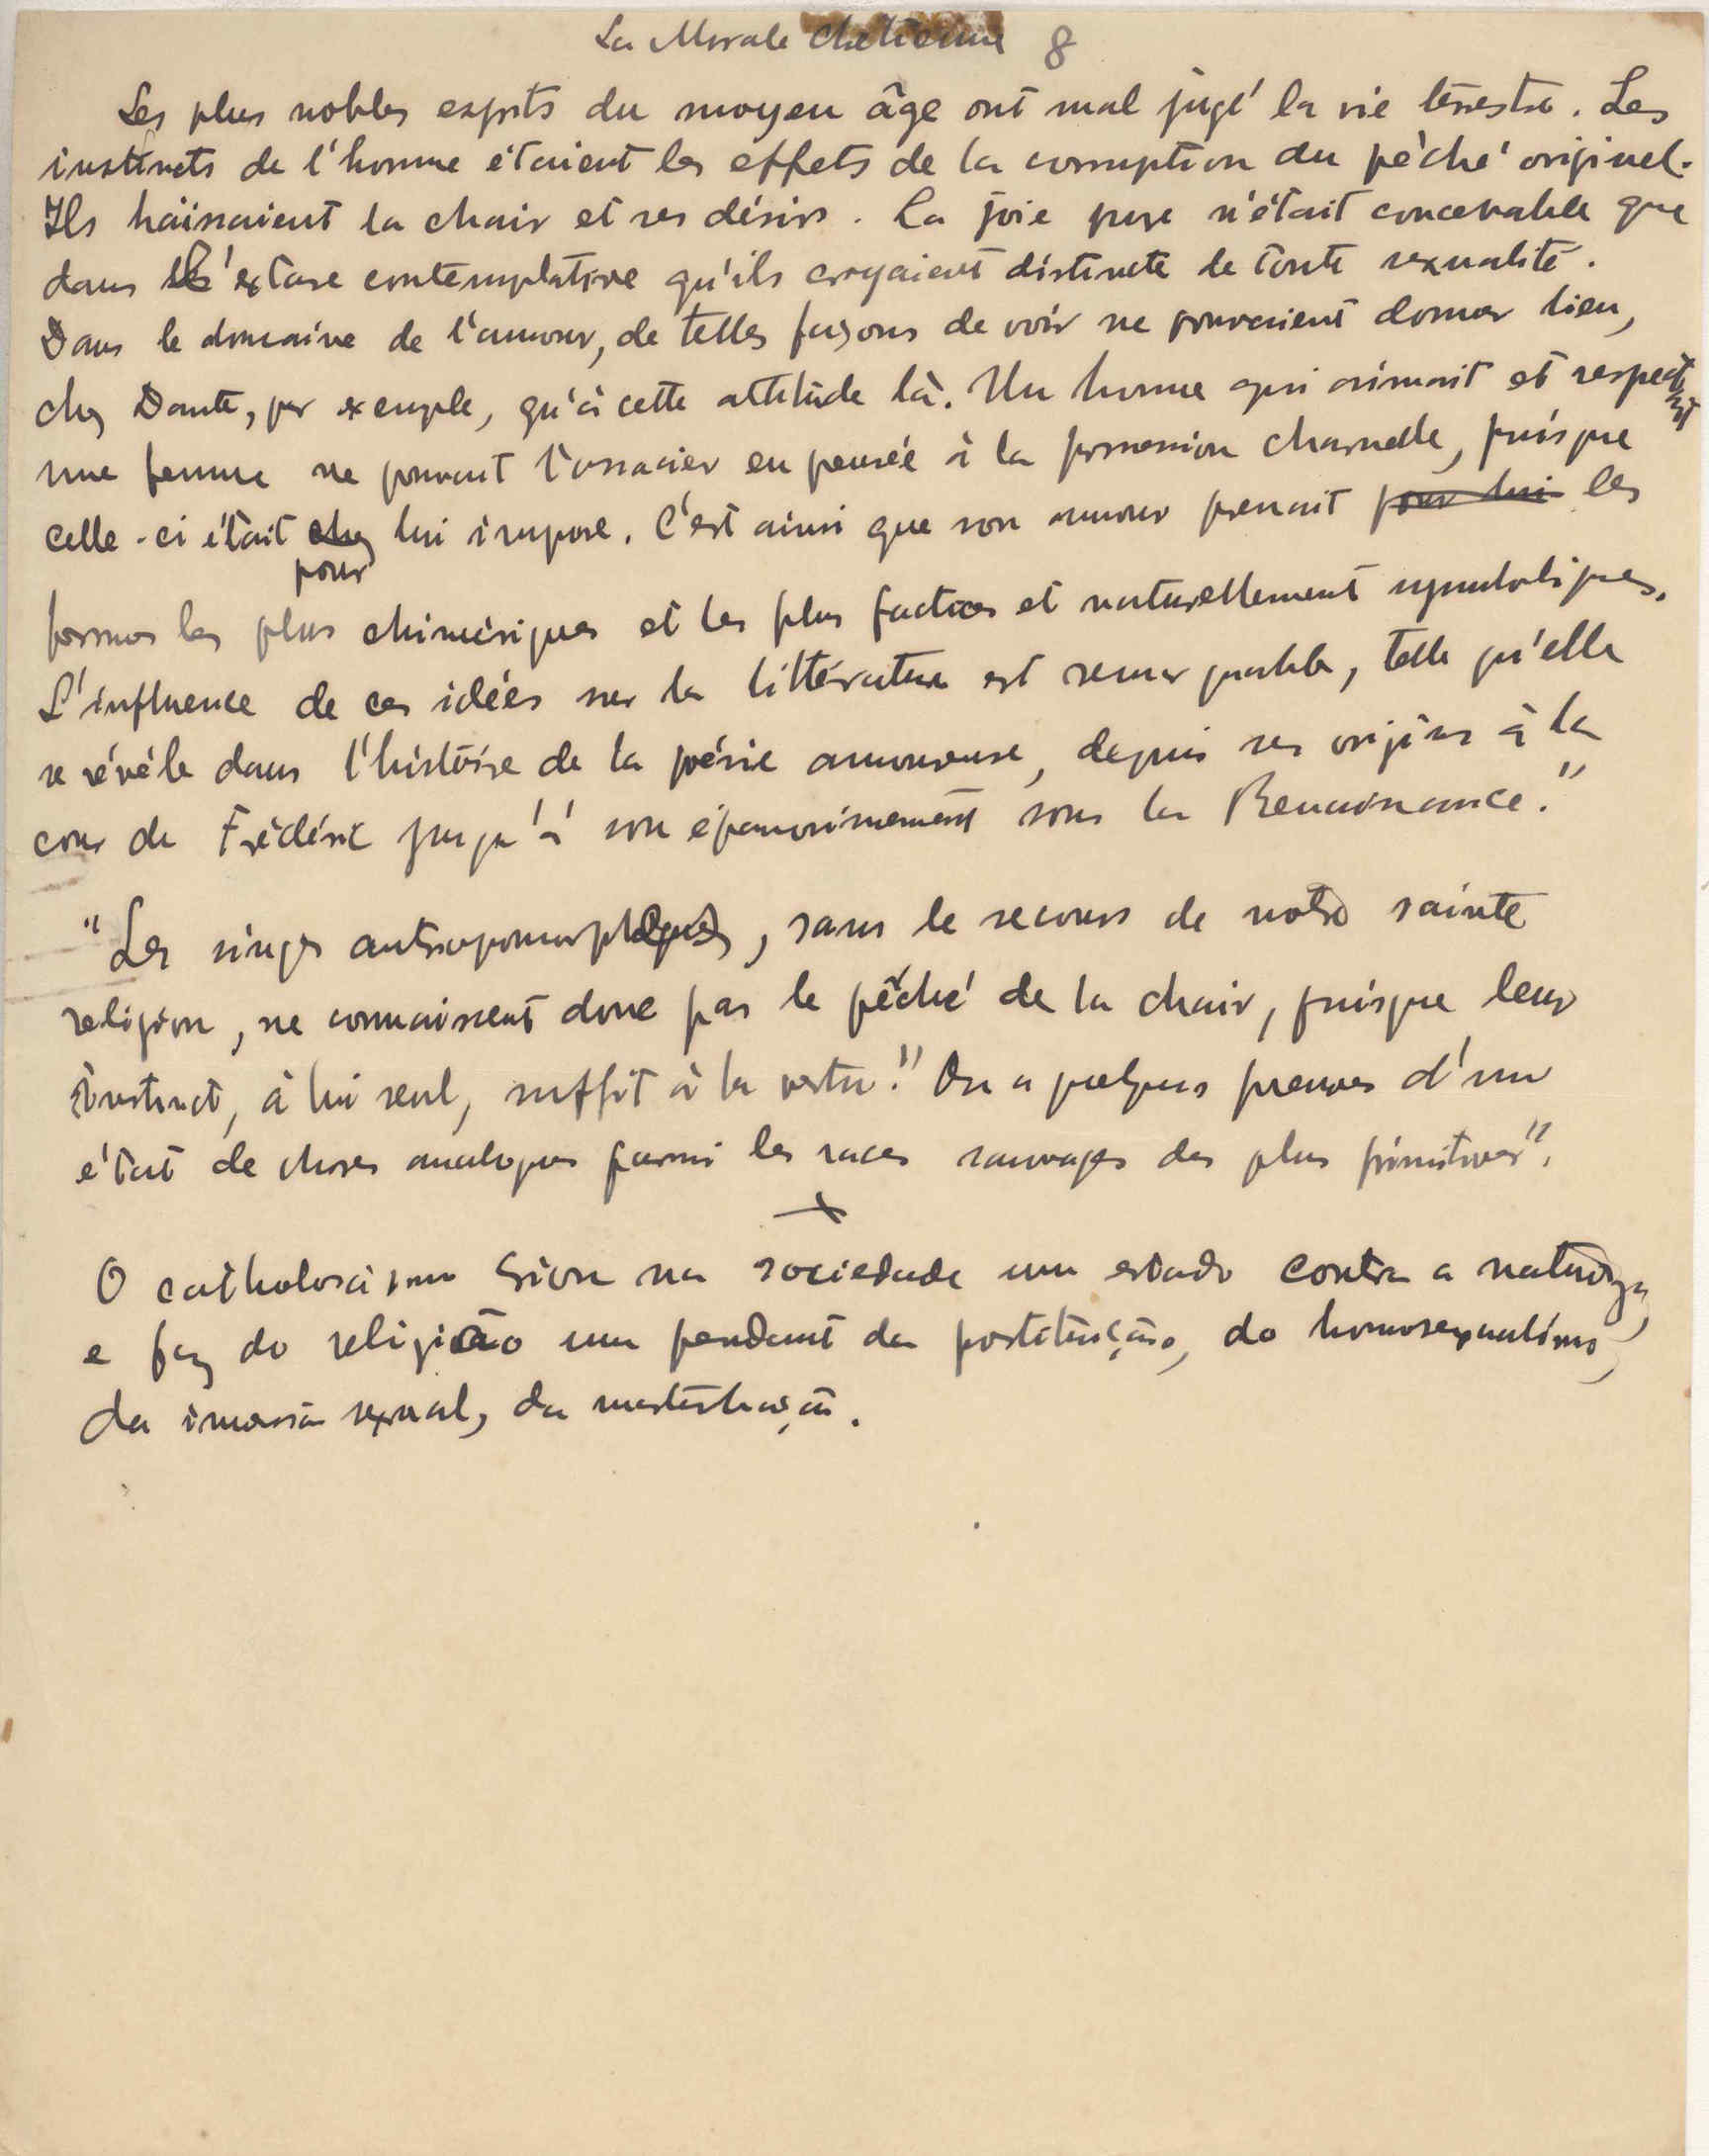 La Morale Chetienne 8
Les plus nobles esprits du moyen âge ont mal jugé la vie terrestre. Les
instincts de l'homme étaient les effets de la corruption du péché originel.
Ils haïssaient la chair et ses désirs. La joie pure n'était concevable que
dans l'extase contemplative qu'ils croyaient distincte de toute sexualité.
Dans le domaine de l'amour, de telles façons de voir ne pouvaient donner lieu,
chez Dante, par exemple, qu'à cette attitude là. Un homme qui aimait et respectait
une femme ne pouvait l'associer en pensée à la possession charnelle, puisque
celle-ci était chez lui impure. C'est ainsi que son amour prenait pour lui les
pour
formes les plus chimériques et les plus factices et naturellement symboliques.
L'influence de ces idées sur la littérature est remarquable, telle qu'elle
se révèle dans l'histoire de la poésie amoureuse, depuis ses origines à la
cour de Frédéric jusqu'à son épanouissement sous la Renaissance."
"Les singes , sans le recours de notre sainte
religion, ne connaissent donc pas le péché de la chair, puisque leur
instinct, à lui seul, suffit à la vertu." On a quelques preuves d'un
état de choses analogues parmi les races sauvages des plus primitives".
x
O catholocismo criou na sociedade um estado contra a natureza,
e fez do religião um pendant da postituição, do homosexualismo,
da sexual, da masturbação.